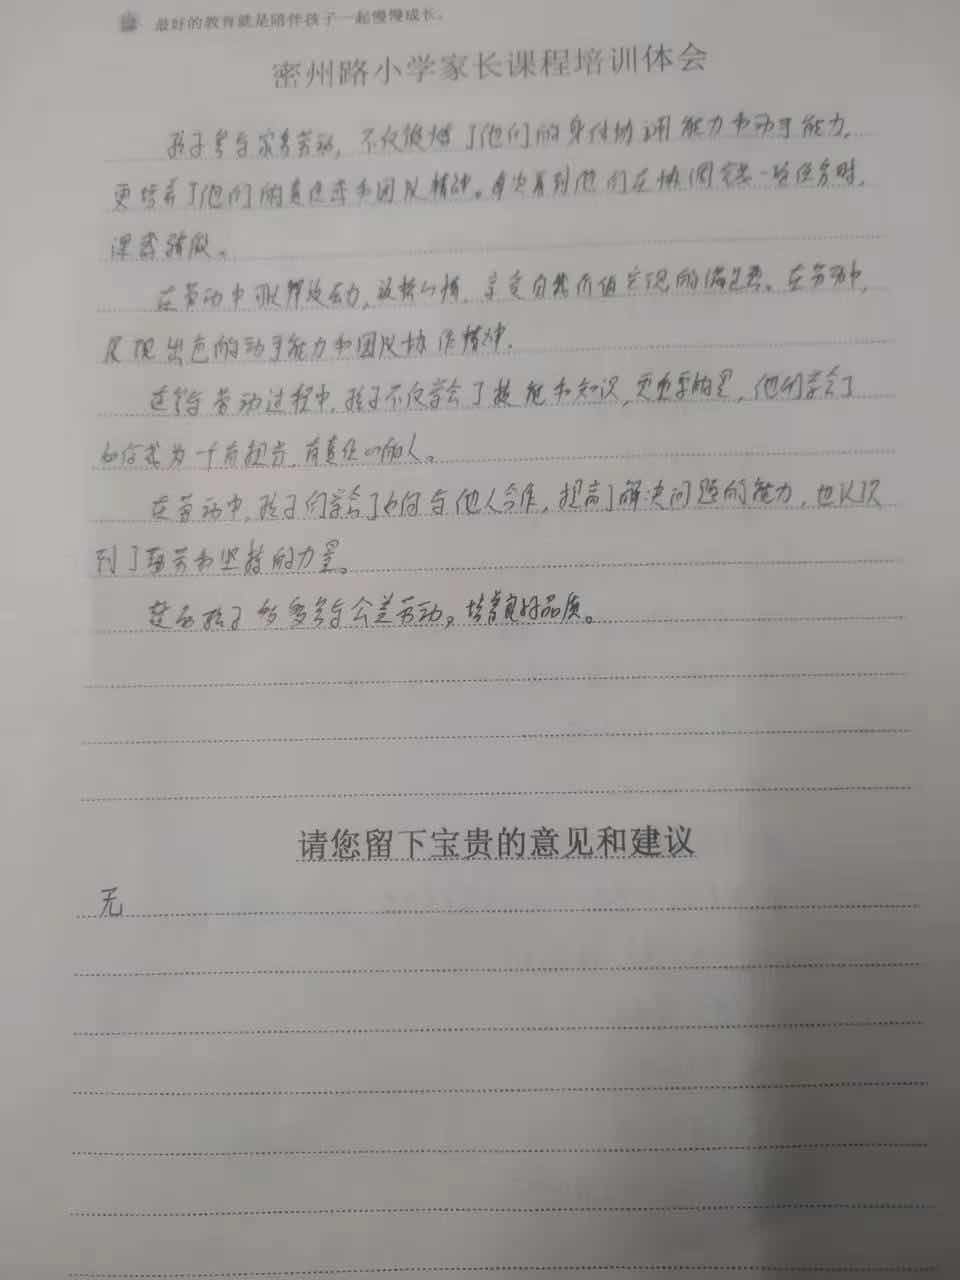 最好的教育就是陪伴孩子一起慢慢成长。
密州路小学家长课程培训体会
孩子参与家务劳动，不仅锻炼了他们的身体协调能力和动手能力，
更培养了他们的责任感和团队精神。每次看到他们在协同完成一项任务时，
深感骄傲。
在劳动中可以释放压力，放松心情，享受自我价值实现的满足感。在劳动中，
展现出色的动手能力和团队协作精神。
在参与劳动过程中，孩子不仅学会了技能和知识，更重要的是，他们学会了
如何成为一个有担当，有责任心的人。
在劳动中，孩子们学会了如何与他人合作，提高了解决问题的能力，也认识
到了勤劳和坚持的力量。
希望孩子能多参与公益劳动，培育良好品质。
请您留下宝贵的意见和建议
无